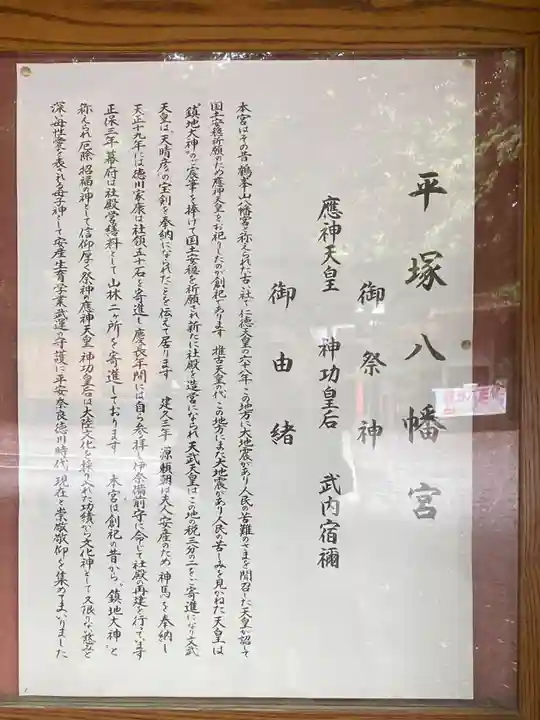 平塚八幡宮
御祭神
應神天皇　神功皇后　武内宿禰
御由緒
本宮はその昔鶴峯山八幡宮と称えられた古い社で仁徳天皇の六十八年この地方に大地震があり人民の苦難のさまを聞召した天皇が詔して
国土安穏祈願のため應神天皇をお祀りしたのが創祀であります 推古天皇の代この地方にまた大地震があり人民の苦しみを見かねた天皇は
"鎮地大神"のご宸筆を捧げて国土安穏を祈願され新たに社殿を造営になられ天武天皇はこの地の税三分の二をご寄進になり文武
天皇は"天晴彦"の宝剣を奉納になられたことを伝えて居ります 建久三年 源頼朝は夫人安産のため 神馬を奉納し
天正十九年には徳川家康は社領五十石を寄進し慶長年間には自ら参拝し伊奈備前守に命じて社殿の再建を行っています
正保三年 幕府は社殿営繕料として山林二ヶ所を寄進しております 本宮は創祀の昔から"鎮地大神"と
称えられ厄除 招福の神として信仰厚く祭神の應神天皇 神功皇后は大陸文化を移入された功績から文化神として又限りない慈みと
深い母性愛を表される母子神として安産生育学業武運の守護に平安奈良徳川時代 現在と崇敬敬仰を集めてまいりました